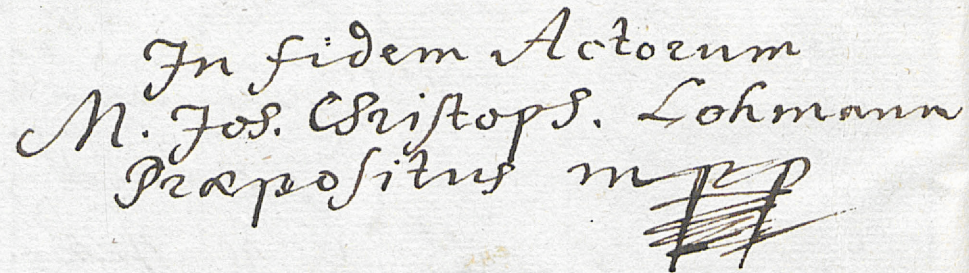 In fidem Actorum
M. Joh. Christoph. Lohmann
Præpositus mpp